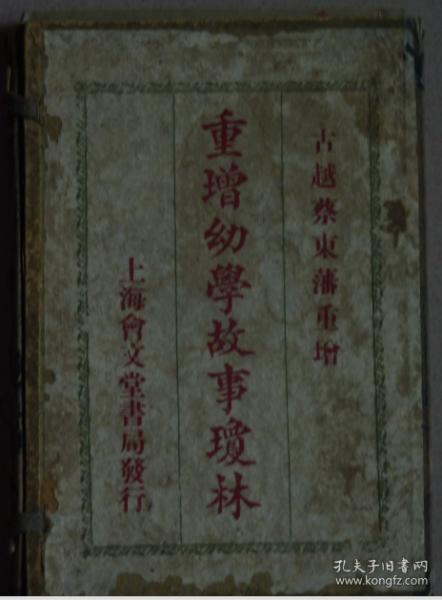 古越蔡東藩重增
重增幼學故事瓊林
上海會文堂書局發行
孔夫子旧书网
www.kongfz.com